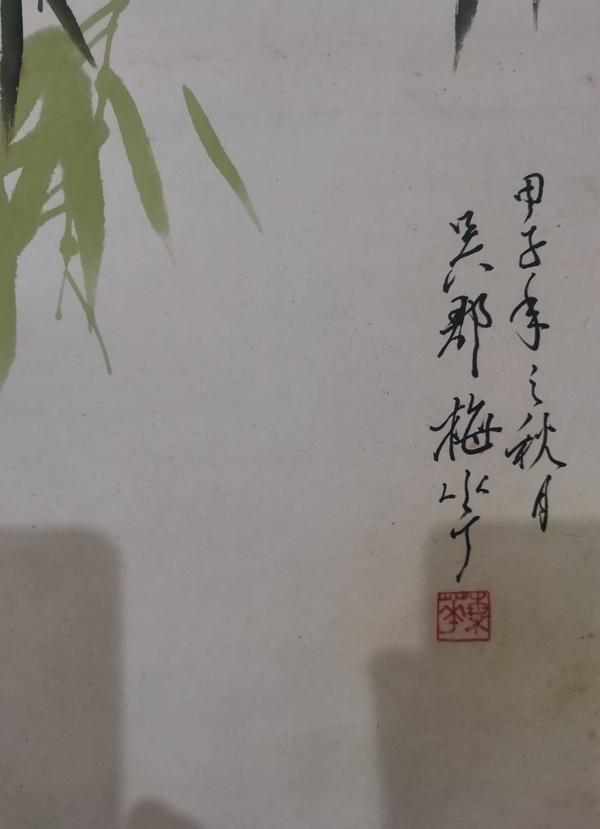 甲子年之秋月
吴郡梅